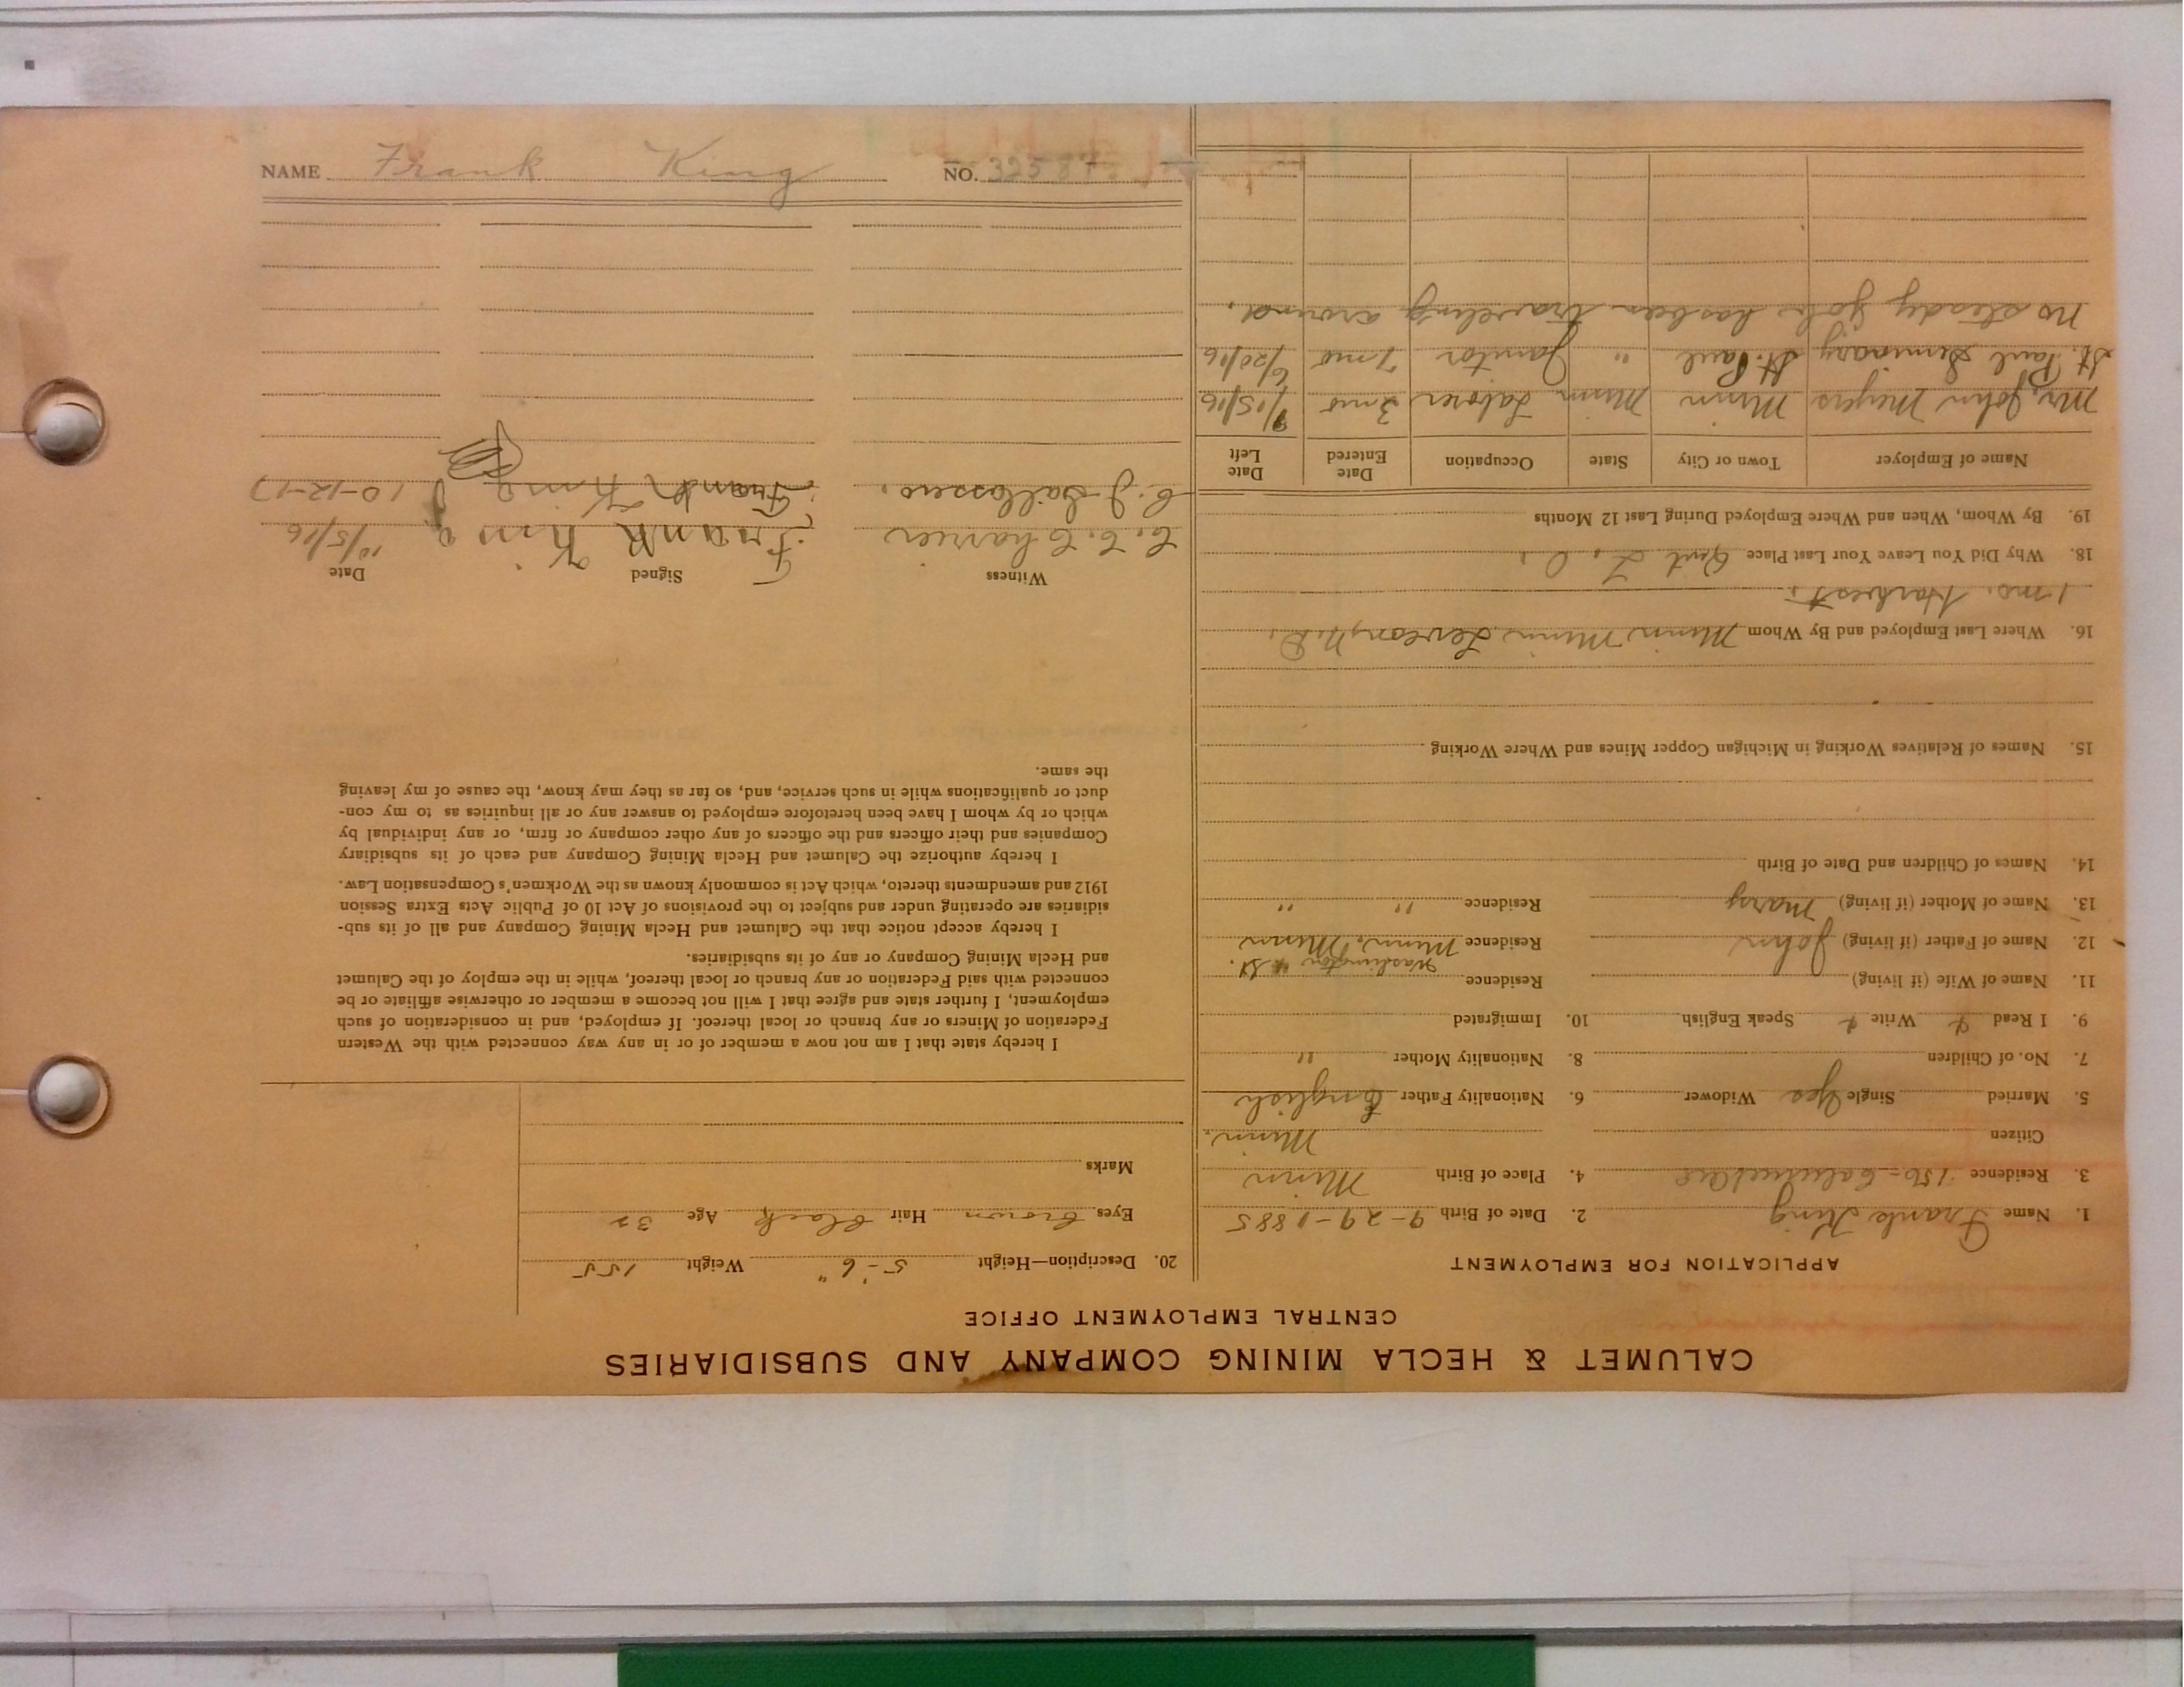 CALUMET & HECLA MINING COMPANY AND SUBSIDIARIES
CENTRAL EMPLOYMENT OFFICE
APPLICATION FOR EMPLOYMENT
1. Name Frank King 2. Date of Birth 9-29-1885
3. Residence 150- 4. Place of Birth Minn
Citizen Minn.
5. Married Single Yes Widower 6. Nationality Father English
7. No. of Children 8. Nationality Mother "
9. I Read Write Speak English 10. Immigrated
11. Name of Wife (if living) Residence
Washington St.
12. Name of Father (if living) John Residence Minn. Minn
13. Name of Mother (if living) Mary Residence " "
14. Names of Children and Date of Birth
15. Names of Relatives Working in Michigan Copper Mines and Where Working
16. Where Last Employed and By Whom Minn Minn. N.D.
1 mo. Harvest.
18. Why Did You Leave Your Last Place Quit
19. By Whom, When and Where Employed During Last 12 Months
Name of Employer Town or City State Occupation Date Entered Date Left
Mr. John Meyers Minn Minn Laborer 3 mo /15/16
St. Paul Seminary St. Paul " Janitor 7 mo 6/20/16
No steady job has been traveling around.
20. Description—Height 5-'6" Weight 155
Eyes brown Hair black Age 32
Marks
I hereby state that I am not now a member of or in any way connected with the Western
Federation of Miners or any branch or local thereof. If employed, and in consideration of such
employment, I further state and agree that I will not become a member or otherwise affiliate or be
connected with said Federation or any branch or local thereof, while in the employ of the Calumet
and Hecla Mining Company or any of its subsidiaries.
I hereby accept notice that the Calumet and Hecla Mining Company and all of its sub-
sidiaries are operating under and subject to the provisions of Act 10 of Public Acts Extra Session
1912 and amendments thereto, which Act is commonly known as the Workmen's Compensation Law.
I hereby authorize the Calumet and Hecla Mining Company and each of its subsidiary
Companies and their officers and the officers of any other company or firm, or any individual by
which or by whom I have been heretofore employed to answer any or all inquiries as to my con-
duct or qualifications while in such service, and, so far as they may know, the cause of my leaving
the same.
Witness Signed Date
C. C. Frank King 10/5/16
C. J. Frank King 10-12-17
NAME Frank King NO. 32587